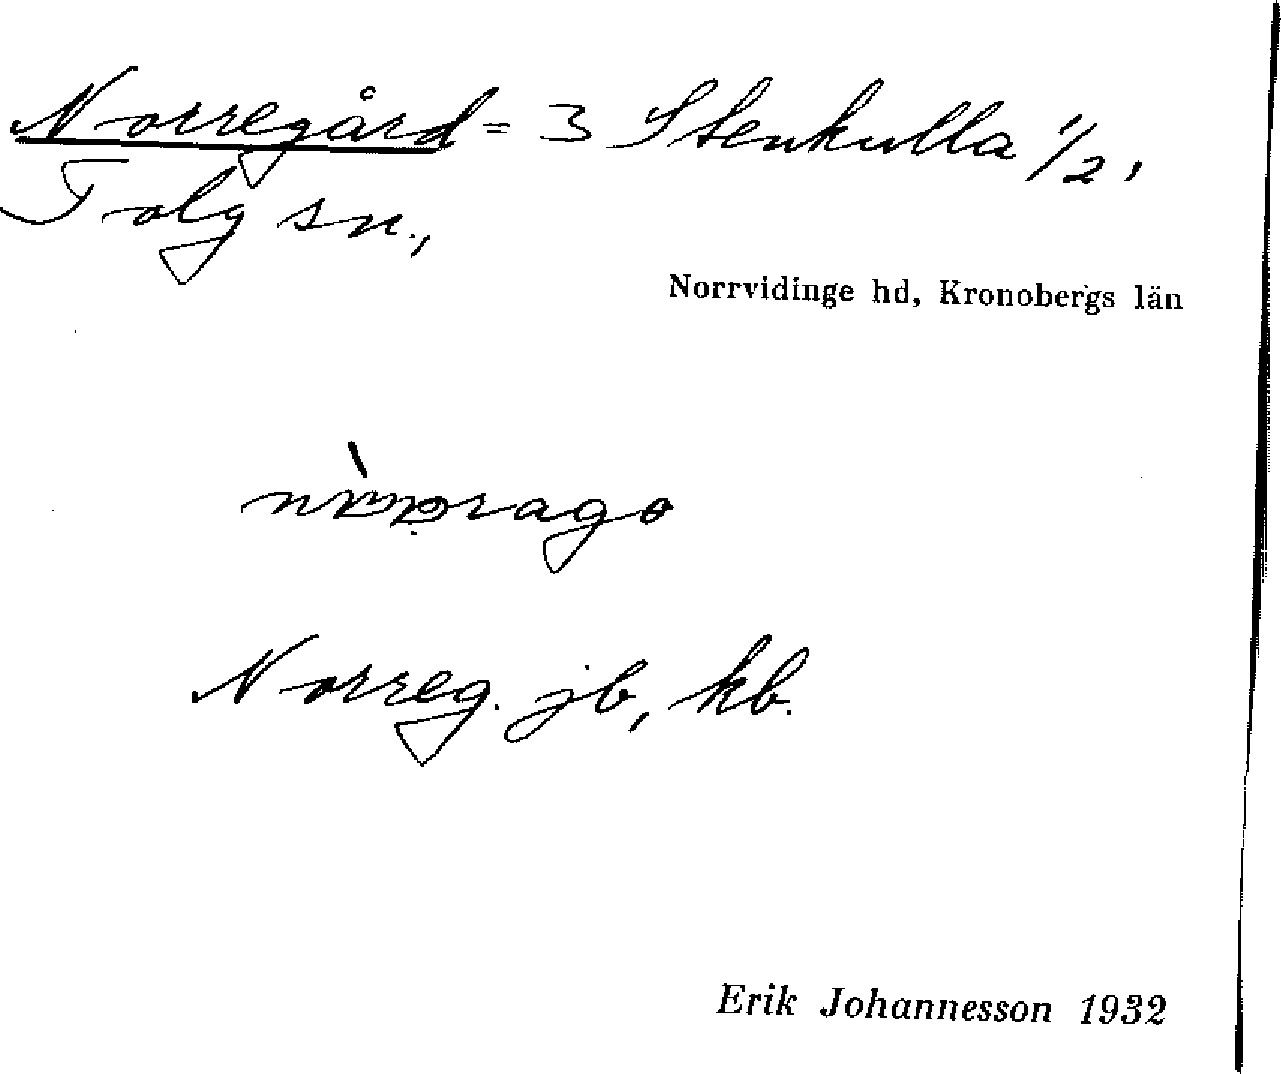 Norregård = 3 Stenkulla 1/2,
Tolg sn.,
Norrvidinge hd, Kronobergs län
Norreg. jb, kb.
Erik Johannesson 1932